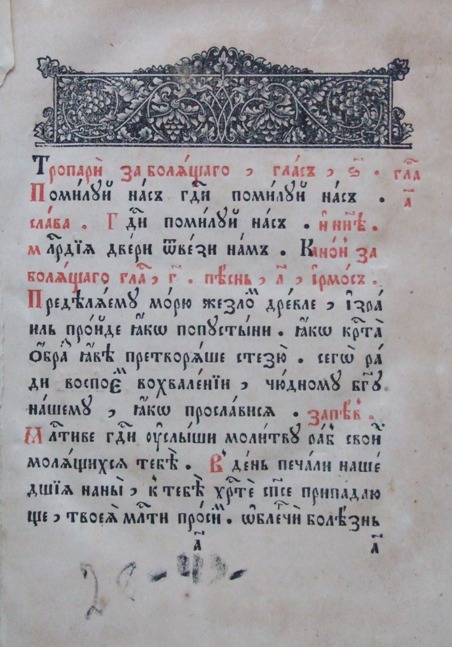 Тропарѝ за болѧ́щаго , гла́съ , ѕ҃ . гла̑
Поми́лꙋй на́съ гдⷭ҇и поми́лꙋй на́съ . а҃
сла́ва . Гдⷭ҇и поми́лꙋй на́съ . и҆ ны́нѣ .
млⷭ҇рдїѧ две́ри ѿве́зи на́мъ . Кано́нъ за
болѧ́щаго гла̑ , г҃ . пѣ́снь , а҃ , і҆рмо́съ .
Предѣлѧ́емꙋ мо́рю жезло́мъ дре́вле , і҆зра́
иль про́йде ꙗ҆́кѡ попꙋсты́ни . ꙗ҆́кѡ крⷭ҇та̀
ѻ҆́бра ꙗ҆́вѣ претворѧ́ше стезю̀ . сегѡ̀ ра́
ди воспое́мъ вохвале́нїи , чю́дномꙋ бг҃ꙋ
на́шемꙋ , ꙗ҆́кѡ просла́висѧ . запѣ́въ .
Млⷭ҇тиве гдⷭ҇и ᲂу҆слы́ши моли́твꙋ ра̑бъ свои́хъ
молѧ́щихсѧ тебѣ̀ . Въ де́нь печа́ли наше́
дшїѧ наны̀ , к тебѣ̀ хрⷭ҇тѐ сп҃се припада́ю
ще , твоеѧ̀ млⷭ҇ти про́симъ . ѡ҆блегчѝ болѣ́знь
а҃ а҃